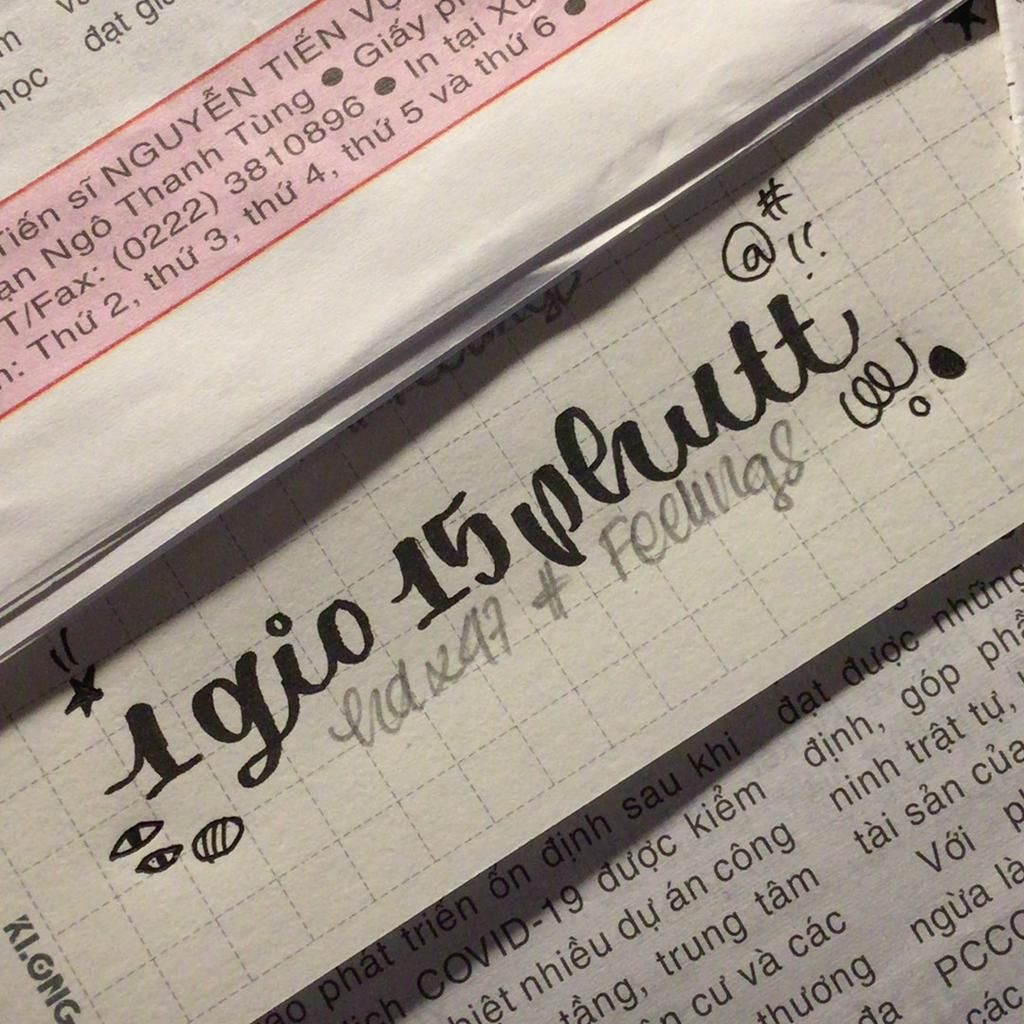 m
đạt gi
học
Tiến sĩ NGUYỄN TIẾN VỤ
Ngô Thanh Tùng ● Giấy ph
T/Fax: (0222) 3810896 ● In tại Xu
n: Thứ 2, thứ 3, thứ 4, thứ 5 và thứ 6 ●
@ # !!
1 gio 15 phutt
# Feelings
!!
KLONG
phát triển ổn định sau khi
dịch COVID-19 được kiểm
biệt nhiều dự án công
tầng, trung tâm
cư và các
thương
đạt được những
định, góp phầ
ninh trật tự,
tài sản của
Với
ngừa là
PCCC
các